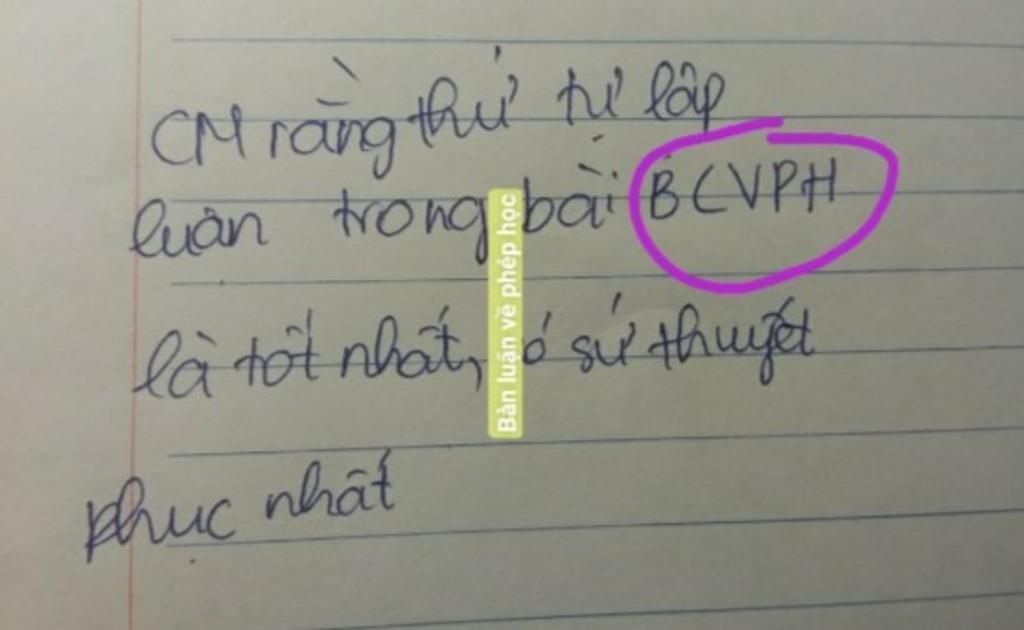 CM rằng thứ tứ lập
luận trong bài BCVPH
là tốt nhất, ó sứ thuyết
phục nhất
Bàn luận về phép học